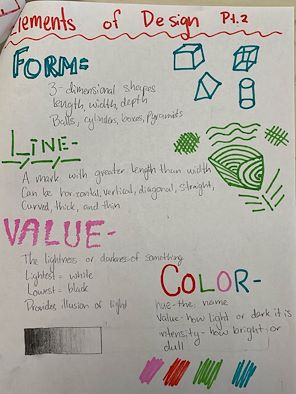 Elements of Design Pt.2
FORM=
3-dimensional shapes
length, width, depth
Balls, cylinders, boxes, Pyramids
LINE-
A mark with greater length than width
Can be horizontal, vertical, diagonal, straight,
Curved, thick, and thin
VALUE-
The lightness or darkness of something
Lightest = white
Lowest = black
Provides illusion of light
COLOR-
hue-the name
Value-how light or dark it is
intensity-how bright or
dull